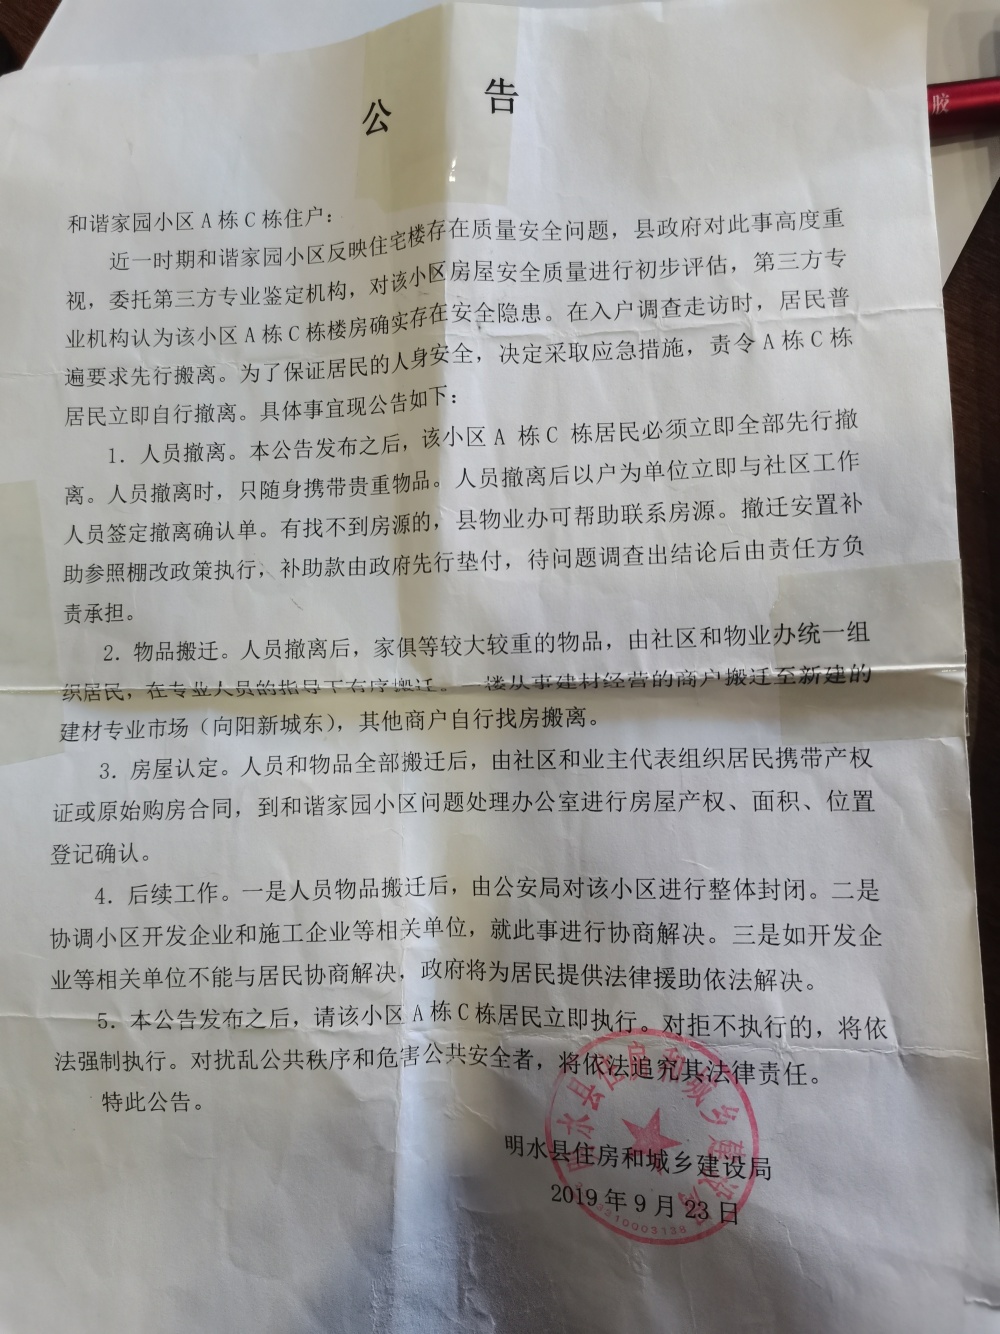 公 告
和谐家园小区 A 栋 C 栋住户：
近一时期和谐家园小区反映住宅楼存在质量安全问题，县政府对此事高度重
视，委托第三方专业鉴定机构，对该小区房屋安全质量进行初步评估，第三方专
业机构认为该小区 A 栋 C 栋楼房确实存在安全隐患。在入户调查走访时，居民普
遍要求先行搬离。为了保证居民的人身安全，决定采取应急措施，责令 A 栋 C 栋
居民立即自行撤离。具体事宜现公告如下：
1. 人员撤离。本公告发布之后，该小区 A 栋 C 栋居民必须立即全部先行撤
离。人员撤离时，只随身携带贵重物品。人员撤离后以户为单位立即与社区工作
人员签定撤离确认单。有找不到房源的，县物业办可帮助联系房源。撤迁安置补
助参照棚改政策执行，补助款由政府先行垫付，待问题调查出结论后由责任方负
责承担。
2. 物品搬迁。人员撤离后，家俱等较大较重的物品，由社区和物业办统一组
织居民，在专业人员的指导下有序搬迁。一楼从事建材经营的商户搬迁至新建的
建材专业市场（向阳新城东），其他商户自行找房搬离。
3. 房屋认定。人员和物品全部搬迁后，由社区和业主代表组织居民携带产权
证或原始购房合同，到和谐家园小区问题处理办公室进行房屋产权、面积、位置
登记确认。
4. 后续工作。一是人员物品搬迁后，由公安局对该小区进行整体封闭。二是
协调小区开发企业和施工企业等相关单位，就此事进行协商解决。三是如开发企
业等相关单位不能与居民协商解决，政府将为居民提供法律援助依法解决。
5. 本公告发布之后，请该小区 A 栋 C 栋居民立即执行。对拒不执行的，将依
法强制执行。对扰乱公共秩序和危害公共安全者，将依法追究其法律责任。
特此公告。
明水县住房和城乡建设局
2019 年 9 月 23 日
明水县住房和城乡建设局
胶